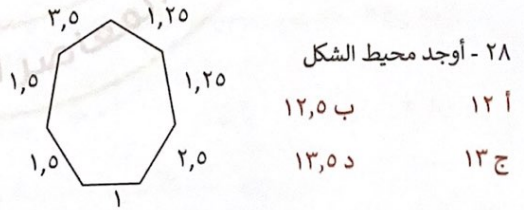 ٢٨ - أوجد محيط الشكل
أ ١٢
ب ١٢,٥
ج ١٣
د ١٣,٥
٣,٥
١,٢٥
١,٥
١,٢٥
١,٥
٢,٥
١